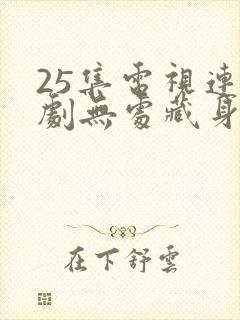 25集電視連
劇無處藏身
在下舒雲